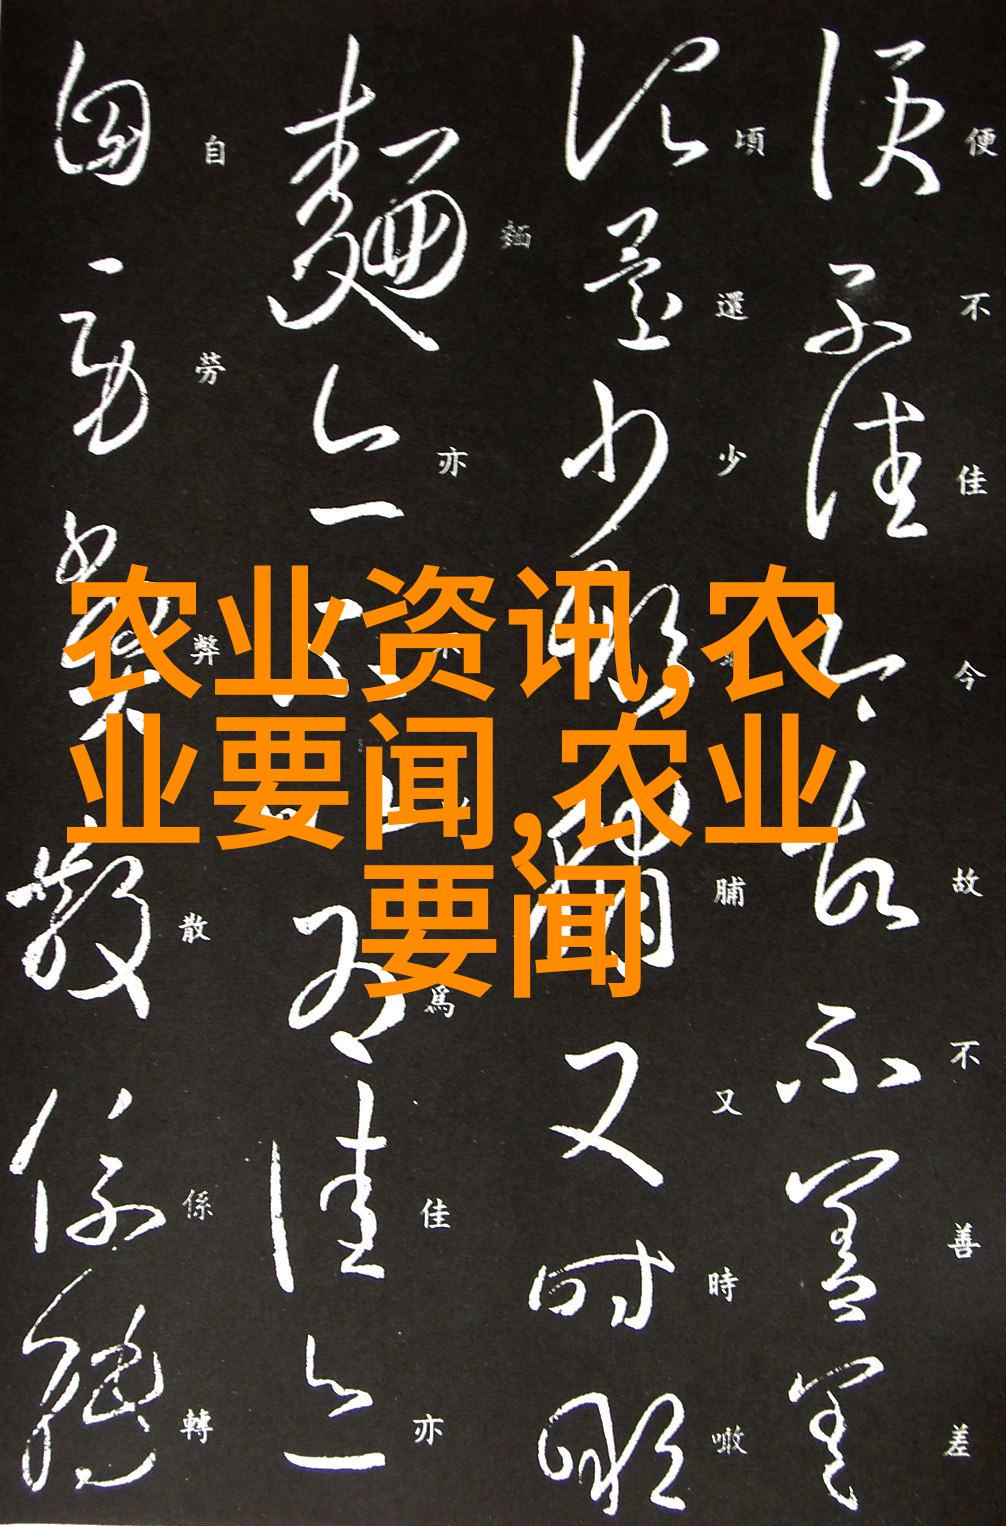 农业资讯,农
业要闻,农业
要闻
便不佳今故不善差
頃還少噉脯又時噉
麵亦不爲佳亦
自勞弊散係轉